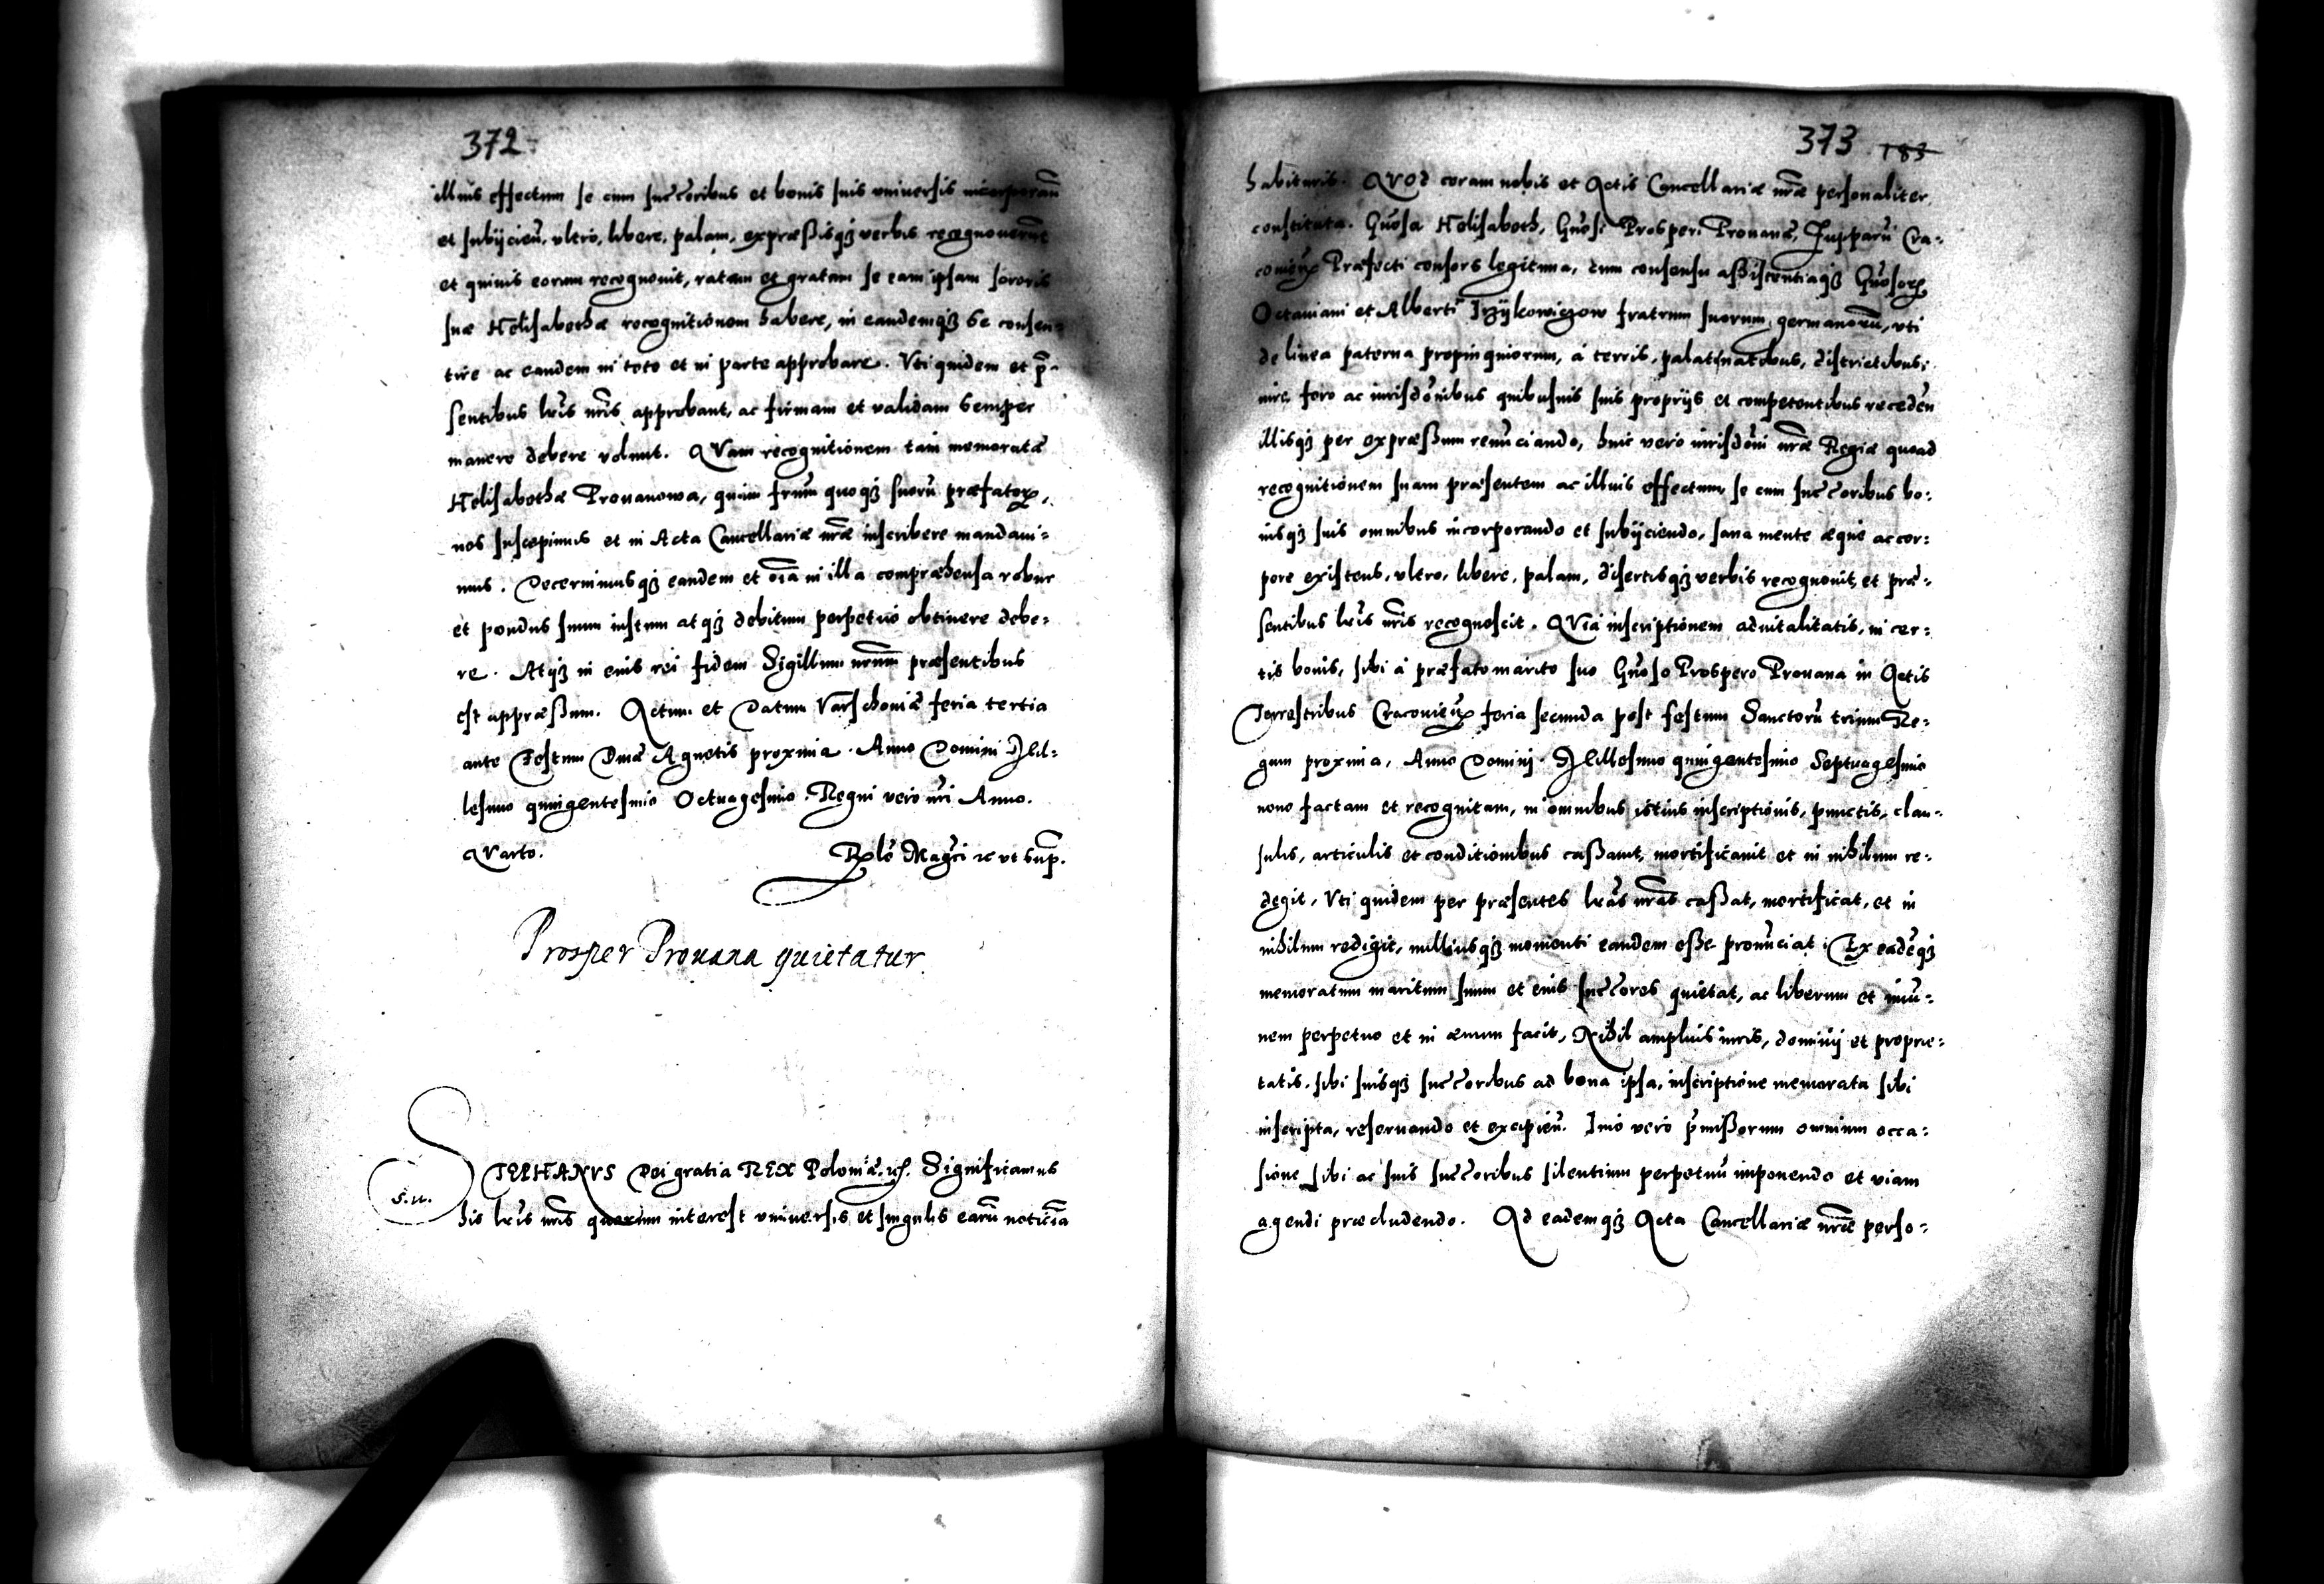 372
illius effectum se cum suc̃c̃oribus et bonis suis vniuersis incorporan̄
et subijcieñ, vltro, libere, palam, expræßisqȝ verbis recognouerunt
et quiuis eorum recognouit, ratam et gratam se eam ipsam sororis
suæ Helisabethæ recognitionem habere, in eandemqȝ se consen=
tire ac eandem in toto et in parte approbare. Vti quidem et p̄=
sentibus lr̃is nr̃is approbant, ac firmam et validam semper
manere debere volunt. QVam recognitionem tam memoratæ
Helisabethæ Prouanowa, quam frũm quoqȝ suorũ præfatorꝝ,
nos suscepimus et in Acta Cancellariæ nr̃æ inscribere mandaui=
mus. Decernimusqȝ eandem et oĩa in illa compræhensa robur
et pondus suum iustum atqȝ debitum perpetuo obtinere debe=
re. Atqȝ in eius rei fidem Sigillum nr̃um præsentibus
est appræßum. Actum et Datum Varschouiæ feria tertia
ante Festum Diuæ Agnetis proxima. Anno Domini Mil=
lesimo quingentesimo Octuagesimo. Regni vero nr̃i Anno.
QVarto. Rᵉˡõ Mag̃ci ꝛc vt sup̃.
Prosper Prouana quietatur
STEPHANVS Dei gratia REX Poloniæ. ꝛc. Significamus
S. n.
his lr̃is nr̃is quorum interest vniuersis et singulis earũ noticiã
373 183
habituris. QVOD coram nobis et Actis Cancellariæ nr̃æ personaliter
constituta. Gñosa Helisabeth, Gñosi Prosperi Prouanæ, Zupparũ Cra=
couieñ Præfecti consors legitima, cum consensu aßistentiaqȝ Gñosorꝝ
Octauiani et Alberti Irzÿkowiczow fratrum suorum germanorũ, vti
de linea paterna propinquiorum, à terris, palatinatibus, districtibus,
iure, foro ac iurisdõnibus quibusuis suis proprijs et competentibus recedeñ
illisqȝ per expræßum renũciando, huic vero iurisdõni nr̃æ Regiæ quoad
recognitionem suam præsentem ac illius effectum, se cum suc̃c̃oribus bo=
nisqȝ suis omnibus incorporando et subijciendo, sana mente æque ac cor=
pore existens, vltro, libere, palam, disertisqȝ verbis recognouit, et præ=
sentibus lr̃is nr̃is recognoscit. QVia inscriptionem aduitalitatis, in cer=
tis bonis, sibi à præfato marito suo Gñoso Prospero Prouana in Actis
Terrestribus Cracouieñ feria secunda post festum Sanctorũ trium Re=
gum proxima, Anno Domini. Millesimo quingentesimo Septuagesimo
nono factam et recognitam, in omnibus istius inscriptionis, punctis, clau=
sulis, articulis et conditionibus caßauit, mortificauit et in nihilum re=
degit, Vti quidem per præsentes lr̃as nr̃as caßat, mortificat, et in
nihilum redigit, nulliusqȝ momenti eandem eße pronũciat. Ex eadẽqȝ
memoratum maritum suum et eius suc̃c̃ores quietat, ac liberum et imũ=
nem perpetuo et in æuum facit, Nihil amplius iuris, dominij et proprie=
tatis. sibi suisqȝ suc̃c̃oribus ad bona ipsa, inscriptione memorata sibi
inscripta, reseruando et excipieñ. Imo vero p̃mißorum omnium occa=
sione sibi ac suis suc̃c̃oribus silentium perpetuũ imponendo et viam
agendi præcludendo. Ad eademqȝ Acta Cancellariæ nr̃æ perso=